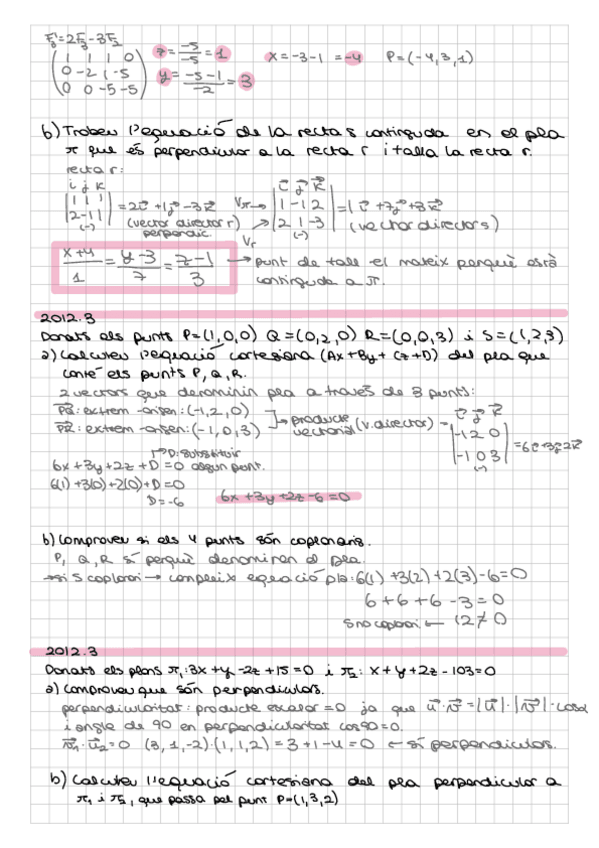 F'3=2F3-3F2
1 1 1 0
0 -2 1 -5
0 0 -5 -5
z = -5/-5 = 1
x = -3-1 = -4
P=(-4,3,1)
y = -5-1/-2 = 3
b) Trobeu l'equació de la recta s continguda en el pla
π que és perpendicular a la recta r i talla la recta r.
recta r:
i j k
1 1 1
2 -1 1
(-)
=2i +1j -3k
(vector director r)
perpendic.
Vπ→
Vr
i j k
1 -1 2
2 1 -3
(-)
=1i +7j +3k
(vector director s)
x+4/1 = y-3/7 = z-1/3
→ punt de tall el mateix perquè està
continguda a π.
2012.3
Donats els punts P=(1,0,0) Q=(0,2,0) R=(0,0,3) i S=(1,2,3)
a) Calculeu l'equació cartesiana (Ax+By+Cz+D) del pla que
conté els punts P, Q, R.
2 vectors que determinin pla a través de 3 punts:
PQ: extrem-origen: (-1,2,0)
PR: extrem-origen: (-1,0,3)
→ producte
vectorial (v.director) =
i j k
-1 2 0
-1 0 3
(-)
=6i+3j+2k
→D: substituir
6x+3y+2z+D=0 algun punt.
6(1)+3(0)+2(0)+D=0
D=-6
6x+3y+2z-6=0
b) Comproveu si els 4 punts són coplanaris.
P, Q, R sí perquè denominen el pla.
→si S coplanari → compleix equació pla: 6(1)+3(2)+2(3)-6=0
6+6+6-3=0
S no coplanari ← 12≠0
2012.3
Donats els plans π1: 3x+y-2z+15=0 i π2: x+y+2z-103=0
a) Comproveu que són perpendiculars.
perpendicularitat: producte escalar=0 ja que u·v=|u|·|v|·cosα
i angle de 90 en perpendicularitat cos90=0.
n1·u2=0 (3,1,-2)·(1,1,2)=3+1-4=0 ← sí perpendiculars.
b) Calculeu l'equació cartesiana del pla perpendicular a
π1 i π2, que passa pel punt P=(1,3,2)